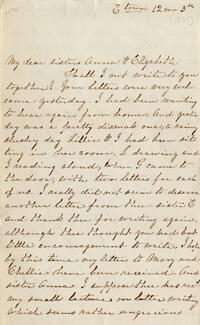 E town 12 mo 5th
My dear sisters Anna & Elizabeth.
Shall I not write to you
together? Your letters were very wel-
come yesterday. I had been wanting
to hear again from home. And yester
day was a pretty dismal one, a rainy
slushy day. Lillie H. & I had been sit
ting in our room, I drawing and
I reading aloud, when G came to
the door, with two letters for each
of us. I really did not seem to deserve
another letter from thee sister E
and thank thee for writing again,
although thee thought you had but
little encouragement to write. I hope
by this time my letter to Mary and
have been received. And
sister Anna I suppose thee has rec'd
my small lecture on letter writing
which seems rather ungracious